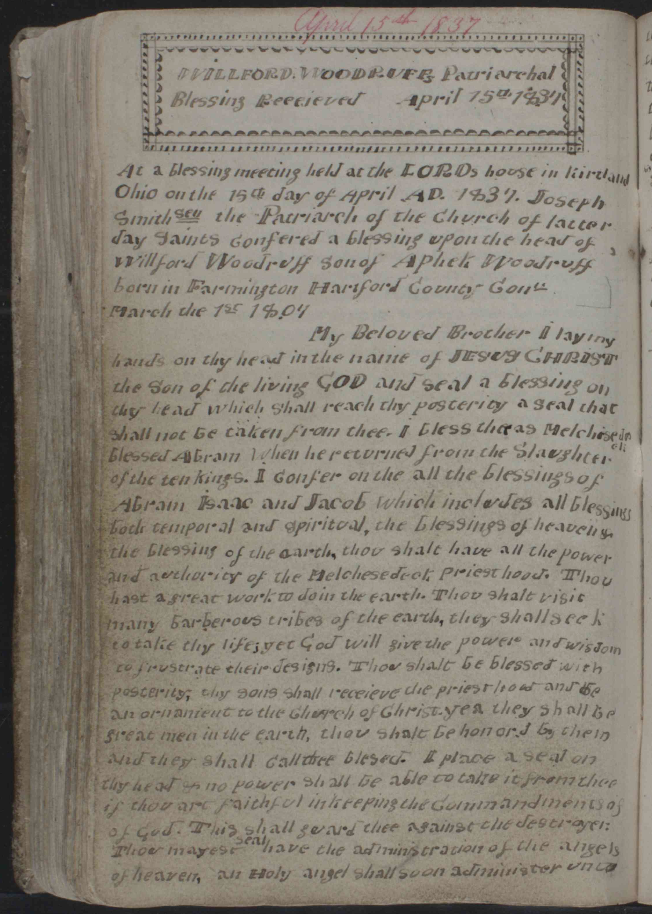 April 15th 1837
WILLFORD. WOODRUFF Patriarchal
Blessing Receieved April 15th 1837
At a blessing meeting held at the LORDs house in Kirtland
Ohio on the 15th day of April AD. 1837. Joseph
Smith sen the Patriarch of the Church of latter
day Saints Confered a blessing upon the head of
Willford Woodruff son of Aphek Woodruff
born in Farmington Hartford County Conn
March the 1st 1807
My Beloved Brother I lay my
hands on thy head in the name of JESUS CHRIST
the Son of the living GOD and seal a blessing on
thy head which shall reach thy posterity a seal that
shall not be taken from thee. I bless thee as Melchisedeck
blessed Abram when he returned from the Slaughter
of the ten kings. I Confer on the all the blessings of
Abram Isaac and Jacob which includes all blessings
both temporal and spiritual, the blessings of heaven &
the blessing of the earth, thou shalt have all the power
and authority of the Melchesedeck Priesthood. Thou
hast a great work to do in the earth. Thou shalt visit
many barberous tribes of the earth, they shall seek
to take thy life; yet God will give the power and wisdom
to frustrate their designs. Thou shalt be blessed with
posterity; thy sons shall receieve the priesthood and be
an ornanient to the Church of Christ. yea they shall be
great men in the earth, thou shalt be honord by them
and they shall call thee blesed. I place a seal on
thy head & no power shall be able to take it from thee
if thou art faithful in keeping the Commandments of
of God. This shall guard thee against the destroyer.
Thou mayest seal have the administration of the angels
of heaven, an Holy angel shall soon administer unto